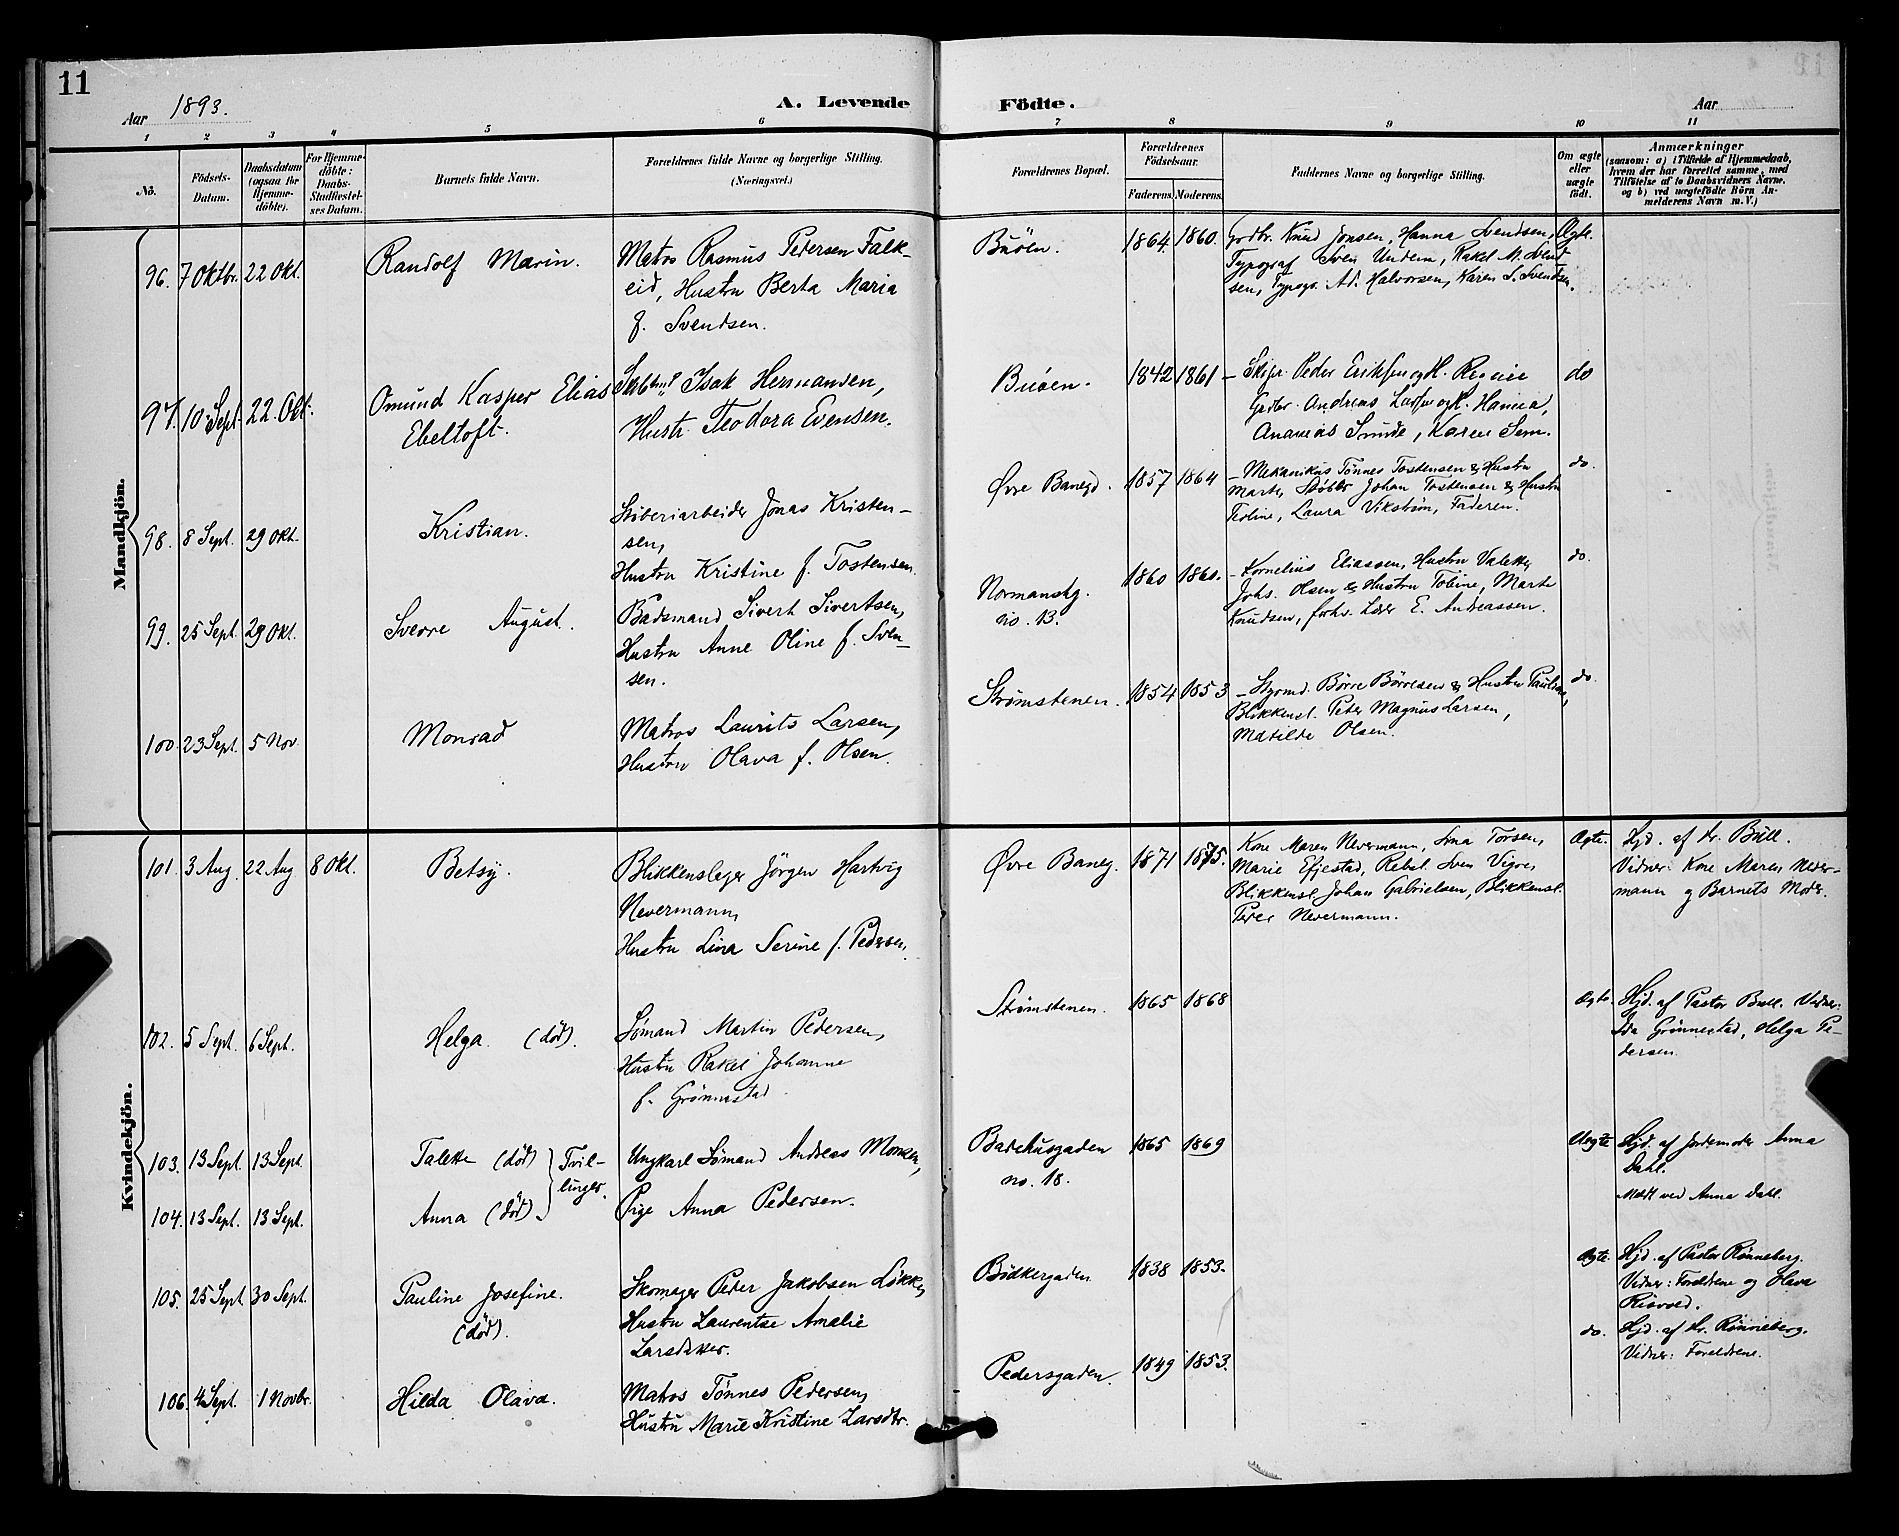 11
Aar 1893.
A. Levende Födte.
Aar
1 2 3 4 5 6 7 8 9 10 11
No.
Födsels-Datum.
Daabsdatum (ogsaa for Hjemme-döbte).
For Hjemme-döbte: Daabs-Stadfæstel-ses Datum.
Barnets fulde Navn.
Forældrenes fulde Navne og borgerlige Stilling. (Næringsvei.)
Forældrenes Bopæl.
Forældrenes Födselsaar.
Faderens. Moderens.
Faddernes Navne og borgerlige Stilling.
Om ægte eller uægte födt.
Anmærkninger
(saasom: a) i Tilfælde af Hjemmedaab, hvem der har forrettet samme, med Tilföielse af to Daabsvidners Navne, og b) ved uægtefödte Börn An-melderens Navn m. V.)
Mandkjön.
96. 7 Oktbr. 22 Okt.
Randolf Marin.
Matros Rasmus Pedersen Falk-
eid, Hustru Berta Maria
f. Svendsen.
Buöen.
1864. 1860.
Godbr. Knud Jonsen, Hanna Svendsen,
Typograf Sven Undem, Rakel M. Svend-
sen, Typogr. Ad. Halvorsen, Karen S. Svendsen.
Ægte.
97. 10 Sept. 22 Okt.
Omund Kasper Elias
Ebeltoft.
Isak Hermansen,
Hustr. Teodora Evensen.
Buöen.
1842 1861
– Skipr. Peder Eriksen og H.
Andreas og H. Hanna,
Ananias Sunde, Karen Sem.
do
98. 8 Sept. 29 Okt.
Kristian.
Stöberiarbeider Jonas Kristen-
sen,
Hustru Kristine f. Tostensen.
Øvre Banegd.
1857 1864
– Mekanikus Tönnes Tostensen & Hustru
Marte, Stöber Johan Tostensen & Hustru
Teoline, Laura Vikström, Faderen.
do.
99. 25 Sept. 29 Okt.
Sverre August.
Baadsmand Sivert Sivertsen,
Hustru Anne Oline f. Sven-
sen.
Normansdg.
no. 13.
1860 1860.
– Kornelius Eliassen, Hustru Valette,
Johs. Olsen & Hustru Tobine, Marte
Knudsen, forhv. Lærer E. Andreassen.
do.
100. 23 Sept. 5 Nov.
Monrad
Matros Laurits Larsen,
Hustru Olava f. Olsen.
Strømstenen.
1854 1853
– Styrmd. Börre Börresen & Hustru Pauline,
Blikkensl. Peter Magnus Larsen,
Matilde Olsen.
do.
Kvindekjön.
101. 3 Aug. 22 Aug 8 Okt.
Betsy.
Blikkenslager Jörgen Hartvig
Nevermann,
Hustru Lina Serine f. Pedersen.
Øvre Baneg.
1871 1875.
Kone Maren Nevermann, Torsen,
Marie Efjestad, Rebsl. Sven Vigre,
Blikkensl. Johan Gabrielsen, Blikkensl.
Peter Nevermann.
Ægte.
Hjd. af Hr. Bull.
Vidner: Kone Maren Never-
mann og Barnets Moder.
102. 5 Sept. 6 Sept.
Helga. (död).
Sömand Martin Pedersen,
Hustru Rakel Johanne
f. Grönnestad.
Strömstenen.
1865 1868
Ægte.
Hjd. af Pastor Bull. Vidner:
Ida Grönnestad, Helga Pe-
dersen.
103. 13 Sept. 13 Sept.
Talette (död)
104. 13 Sept. 13 Sept.
Anna (död)
Tvil-
linger.
Ungkarl Sömand Andreas Monsen,
Pige Anna Pedersen.
Badehusgaden
no. 18.
1865 1869
Uægte
Hjd. af Jordemoder Anna
Dahl.
Meldt ved Anna Dahl.
105. 25 Sept. 30 Sept.
Pauline Josefine.
(död).
Skomager Peter Jakobsen Lökke,
Hustru Laurentse Amalie
Larsdatter.
Bödkergaden
1838 1853.
Ægte.
Hjd. af Pastor Rönneberg.
Vidner: Foreldrene og Olava
Risvold.
106. 4 Sept. 1 Novbr.
Hilda Olava.
Matros Tönnes Pedersen,
Hustru Marie Kristine Larsdtr.
Pedersgaden.
1849 1853.
do.
Hjd. af Hr. Rönneberg.
Vidner: Foreldrene.